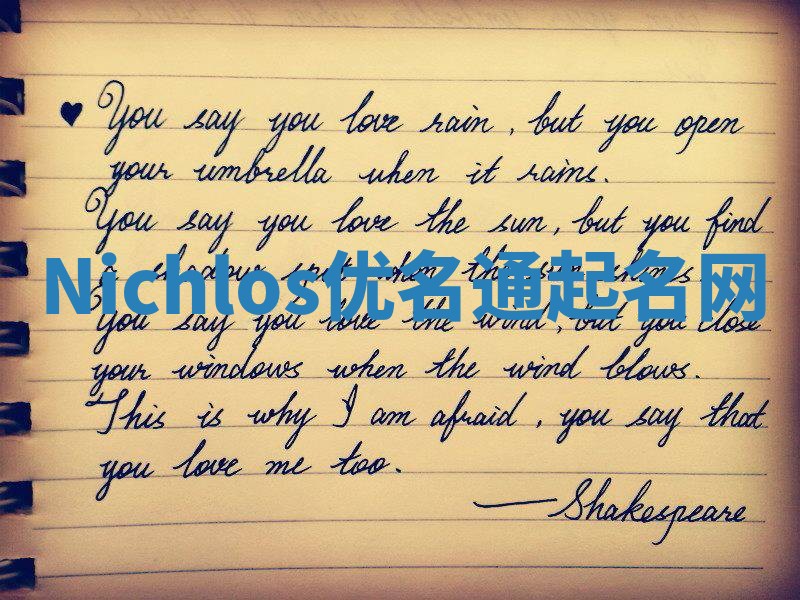 ♥ You say you love rain, but you open
your umbrella when it rains.
You say you love the sun, but you find
a shadow spot when the sun shines
Nichlos优名通起名网
You say you love the wind, but you close
your windows when the wind blows.
This is why I am afraid, you say that
you love me too.
—Shakespeare